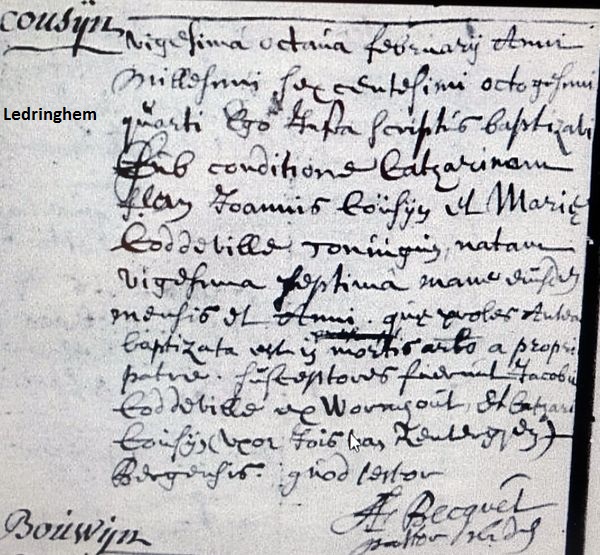 cousÿn
vigesima octava februarij Anni
Ledringhem
millesimi sexcentesimi octogesimi
quarti Ego infra scriptus baptizavi
sub conditione Catharinam
filiam Joannis Coüsÿn et Mariæ
Coddeville coniugum, natam
vigesima septima mane eiusdem
mensis et Anni. quæ proles Antea
baptizata est in mortis a propri
patre. susceptores fuerunt Jacobus
Coddeville ex Wormhout, et Cathari
Coüsÿn (uxor Jois van
Bergensis. quod testor
Becquet
pastor
Boüwÿn